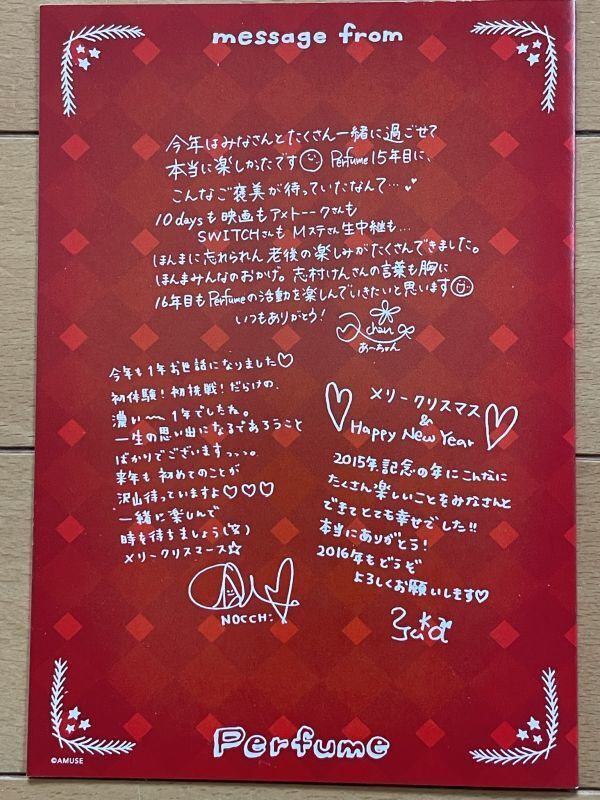 message from
今年はみなさんとたくさん一緒に過ごせて
本当に楽しかたです Perfume 15年目に、
こんなご褒美が待っていたなんて…
10daysも映画もアメトーークさんも
SWITCHさんもMステさん生中継も…
ほんまに忘れられん老後の楽しみがたくさんできました。
ほんまみんなのおかげ。志村けんさんの言葉も胸に
16年目もPerfumeの活動を楽しんでいきたいと思います
いつもありがとう!
a chan
あ〜ちゃん
今年も1年お世話になりました♡
初体験!初挑戦!だらけの、
濃い〜1年でしたね。
一生の思い出になるであろうこと
ばかりでございますっっっ。
来年も初めてのことが
沢山待っていますよ♡♡♡
一緒に楽しんで
時を待ちましょう(笑)
メリークリスマース☆
NOCCHi
メリークリスマス
&
Happy New Year
2015年記念の年にこんなに
たくさん楽しいことをみなさんと
できてとても幸せでした!!
本当にありがとう!
2016年もどうぞ
よろしくお願いします♡
Perfume
©AMUSE